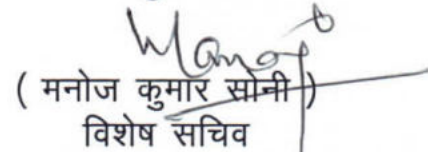 Manoj
( मनोज कुमार सोनी )
विशेष सचिव